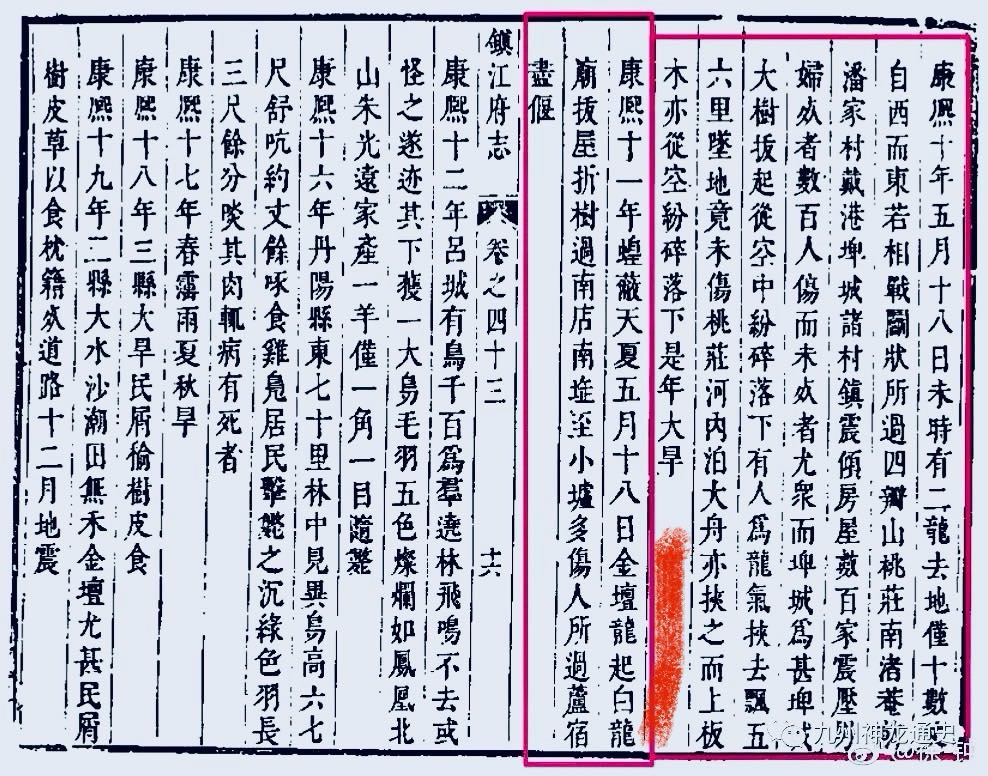 康熙十年五月十八日未時有二龍去地僅十數
自西而東若相戰鬭狀所過四瓣山桃莊南渚菴
潘家村戴港埤城諸村鎮震傾房屋數百家震壓
婦死者數百人傷而未死者尤衆而埤城爲甚埤城
大樹拔起從空中紛碎落下有人爲龍氣挾去飄五
六里墜地竟未傷桃莊河內泊大舟亦挾之而上板
木亦從空紛碎落下是年大旱
康熙十一年蝗蔽天夏五月十八日金壇龍起白龍
廟拔屋折樹過南店南埞至小墟多傷人所過蘆宿
盡偃
鎮江府志 卷之四十三 十六
康熙十二年呂城有鳥千百爲羣遶林飛鳴不去或
怪之遂迹其下獲一大鳥毛羽五色燦爛如鳳凰北
山朱光遠家產一羊僅一角一目隨斃
康熙十六年丹陽縣東七十里林中見異鳥高六七
尺舒吭約丈餘啄食雞鳧居民擊斃之沉綠色羽長
三尺餘分啖其肉輒病有死者
康熙十七年春霪雨夏秋旱
康熙十八年三縣大旱民屑榆樹皮食
康熙十九年二縣大水沙潮田無禾金壇尤甚民屑
樹皮草以食枕籍死道路十二月地震
九州神龙通史